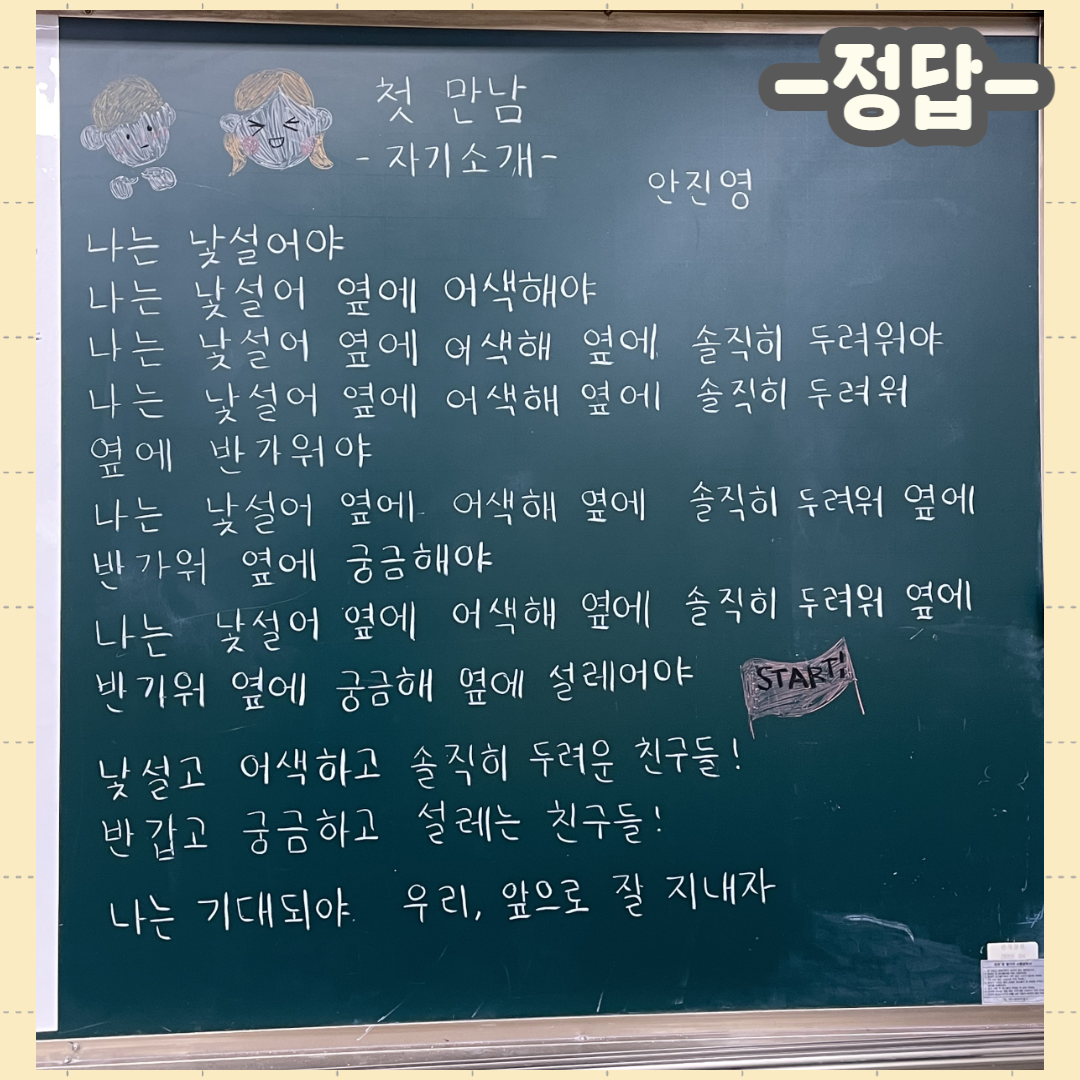 정답
첫 만남
- 자기소개 -
안진영
나는 낯설어야
나는 낯설어 옆에 어색해야
나는 낯설어 옆에 어색해 옆에 솔직히 두려워야
나는 낯설어 옆에 어색해 옆에 솔직히 두려워
옆에 반가워야
나는 낯설어 옆에 어색해 옆에 솔직히 두려워 옆에
반가워 옆에 궁금해야
나는 낯설어 옆에 어색해 옆에 솔직히 두려워 옆에
반가워 옆에 궁금해 옆에 설레어야
START!
낯설고 어색하고 솔직히 두려운 친구들!
반갑고 궁금하고 설레는 친구들!
나는 기대되야 우리, 앞으로 잘 지내자